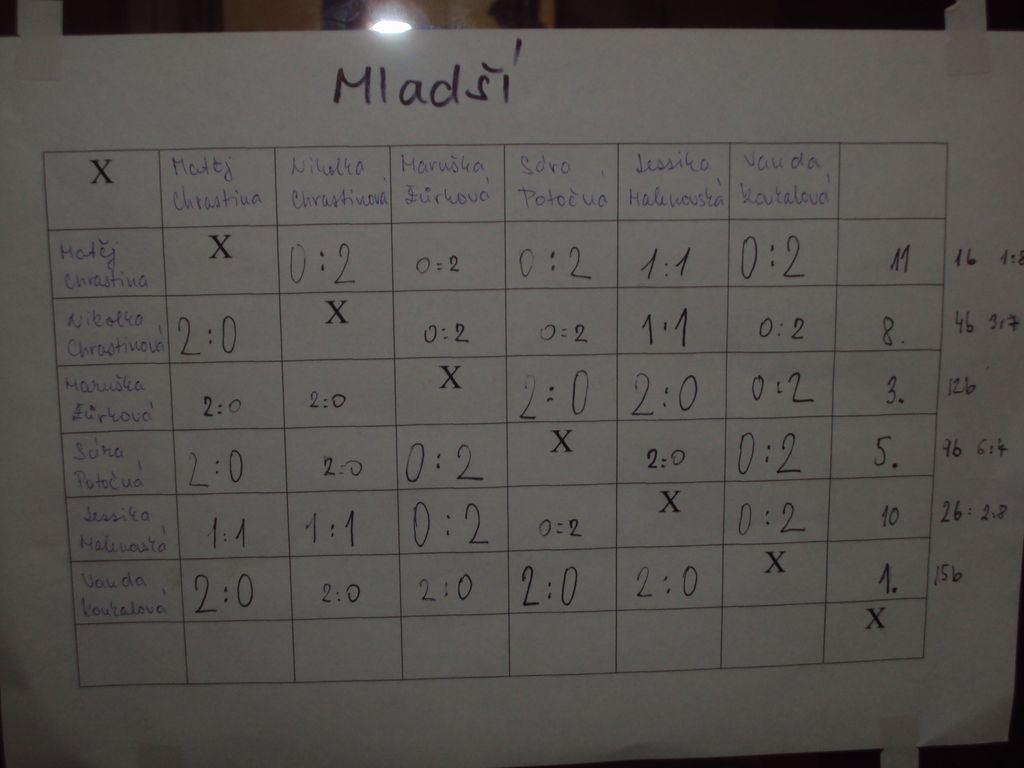 Mladší
X Matěj Chrastina Nikolka Chrastinová Maruška Žůrková Sára Potočná Jessika Malinovská Vanda Kouřalová
Matěj Chrastina X 0:2 0:2 0:2 1:1 0:2 11 1b 1:8
Nikolka Chrastinová 2:0 X 0:2 0:2 1:1 0:2 8. 4b 3:7
Maruška Žůrková 2:0 2:0 X 2:0 2:0 0:2 3. 12b
Sára Potočná 2:0 2:0 0:2 X 2:0 0:2 5. 9b 6:4
Jessika Malinovská 1:1 1:1 0:2 0:2 X 0:2 10 2b: 2:8
Vanda Kouřalová 2:0 2:0 2:0 2:0 2:0 X 1. 15b
X